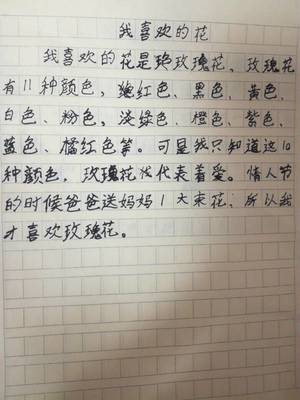 我喜欢的花
我喜欢的花是玫瑰花，玫瑰花
有11种颜色，红色、黑色、黄色、
白色、粉色，淡绿色、橙色、紫色、
蓝色、橘红色等。可是我只知道这10
种颜色，玫瑰花代表着爱。情人节
的时候爸爸送妈妈1大束花，所以我
才喜欢玫瑰花。